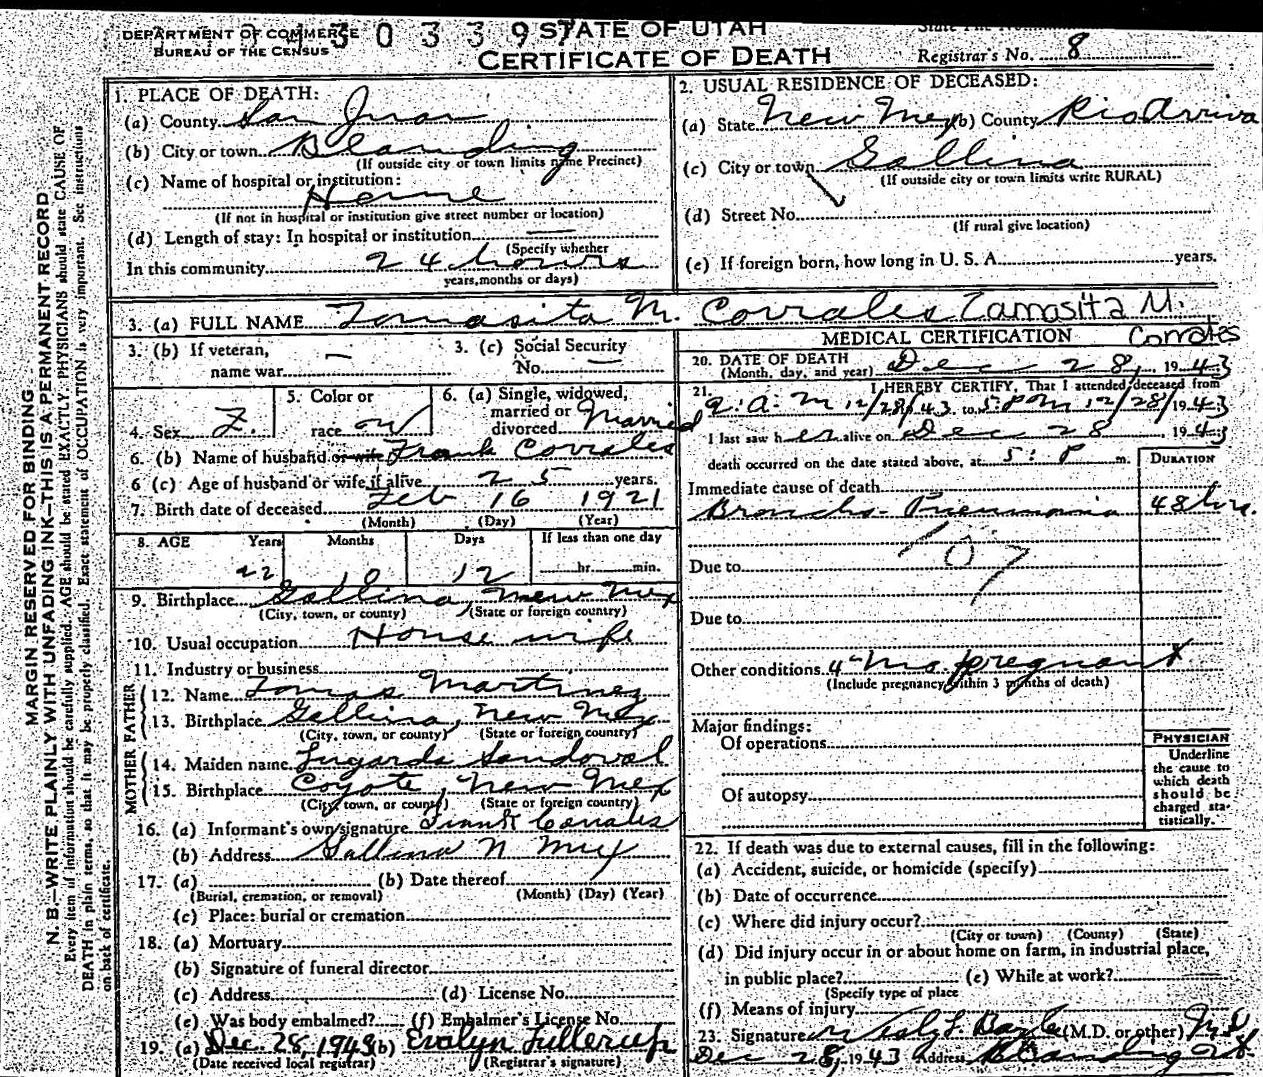 DEPARTMENT OF COMMERCE
BUREAU OF THE CENSUS
4 3 0 3 3 9 7
STATE OF UTAH
CERTIFICATE OF DEATH
Registrar's No. 8
MARGIN RESERVED FOR BINDING
N. B.—WRITE PLAINLY WITH UNFADING INK—THIS IS A PERMANENT RECORD
Every item of information should be carefully supplied. AGE should be stated EXACTLY. PHYSICIANS should state CAUSE OF
DEATH in plain terms, so that it may be properly classified. Exact statement of OCCUPATION is very important. See instructions
on back of certificate.
1. PLACE OF DEATH:
(a) County San Juan
(b) City or town Blanding
(If outside city or town limits name Precinct)
(c) Name of hospital or institution:
Home
(If not in hospital or institution give street number or location)
(d) Length of stay: In hospital or institution
(Specify whether
In this community 24 hours
years, months or days)
2. USUAL RESIDENCE OF DECEASED:
(a) State New Mex (b) County Rio Arriva
(c) City or town Gallina
(If outside city or town limits write RURAL)
(d) Street No.
(If rural give location)
(e) If foreign born, how long in U. S. A. years.
3. (a) FULL NAME Tomasita M. Corrales Tamasita M. Corrales
3. (b) If veteran,
name war — 3. (c) Social Security
No. —
4. Sex F. 5. Color or
race W 6. (a) Single, widowed,
married or
divorced Married
6. (b) Name of husband or wife Frank Corrales
6 (c) Age of husband or wife if alive 25 years.
7. Birth date of deceased Feb 16 1921
(Month) (Day) (Year)
8. AGE Years Months Days If less than one day
22 10 12 hr. min.
9. Birthplace Gallina, New Mex
(City, town, or county) (State or foreign country)
10. Usual occupation House wife
11. Industry or business
FATHER
12. Name Tomas Martinez
13. Birthplace Gallina, New Mex
(City, town, or county) (State or foreign country)
MOTHER
14. Maiden name Lugarda Sandoval
15. Birthplace Coyote, New Mex
(City, town, or county) (State or foreign country)
16. (a) Informant's own signature Frank Corrales
(b) Address Gallina N Mex
17. (a) (b) Date thereof
(Burial, cremation, or removal) (Month) (Day) (Year)
(c) Place: burial or cremation
18. (a) Mortuary
(b) Signature of funeral director
(c) Address (d) License No.
(e) Was body embalmed? (f) Embalmer's License No.
19. (a) Dec. 28, 1943 (b) Evalyn Fullerup
(Date received local registrar) (Registrar's signature)
MEDICAL CERTIFICATION
20. DATE OF DEATH
(Month, day, and year) Dec 28, 1943
21. I HEREBY CERTIFY, That I attended deceased from
A.M 12/28/43 to 5 PM 12/28/1943
I last saw her alive on Dec 28, 1943
death occurred on the date stated above, at 5: P m. DURATION
Immediate cause of death
Broncho-Pneumonia 48 hrs.
107
Due to
Due to
Other conditions 4 mo. pregnant X
(Include pregnancy within 3 months of death)
Major findings:
Of operations
Of autopsy
PHYSICIAN
Underline
the cause to
which death
should be
charged sta-
tistically.
22. If death was due to external causes, fill in the following:
(a) Accident, suicide, or homicide (specify)
(b) Date of occurrence
(c) Where did injury occur?
(City or town) (County) (State)
(d) Did injury occur in or about home on farm, in industrial place,
in public place? (e) While at work?
(Specify type of place
(f) Means of injury
23. Signature (M.D. or other) M.D
Dec 28, 1943 Address Blanding Ut.